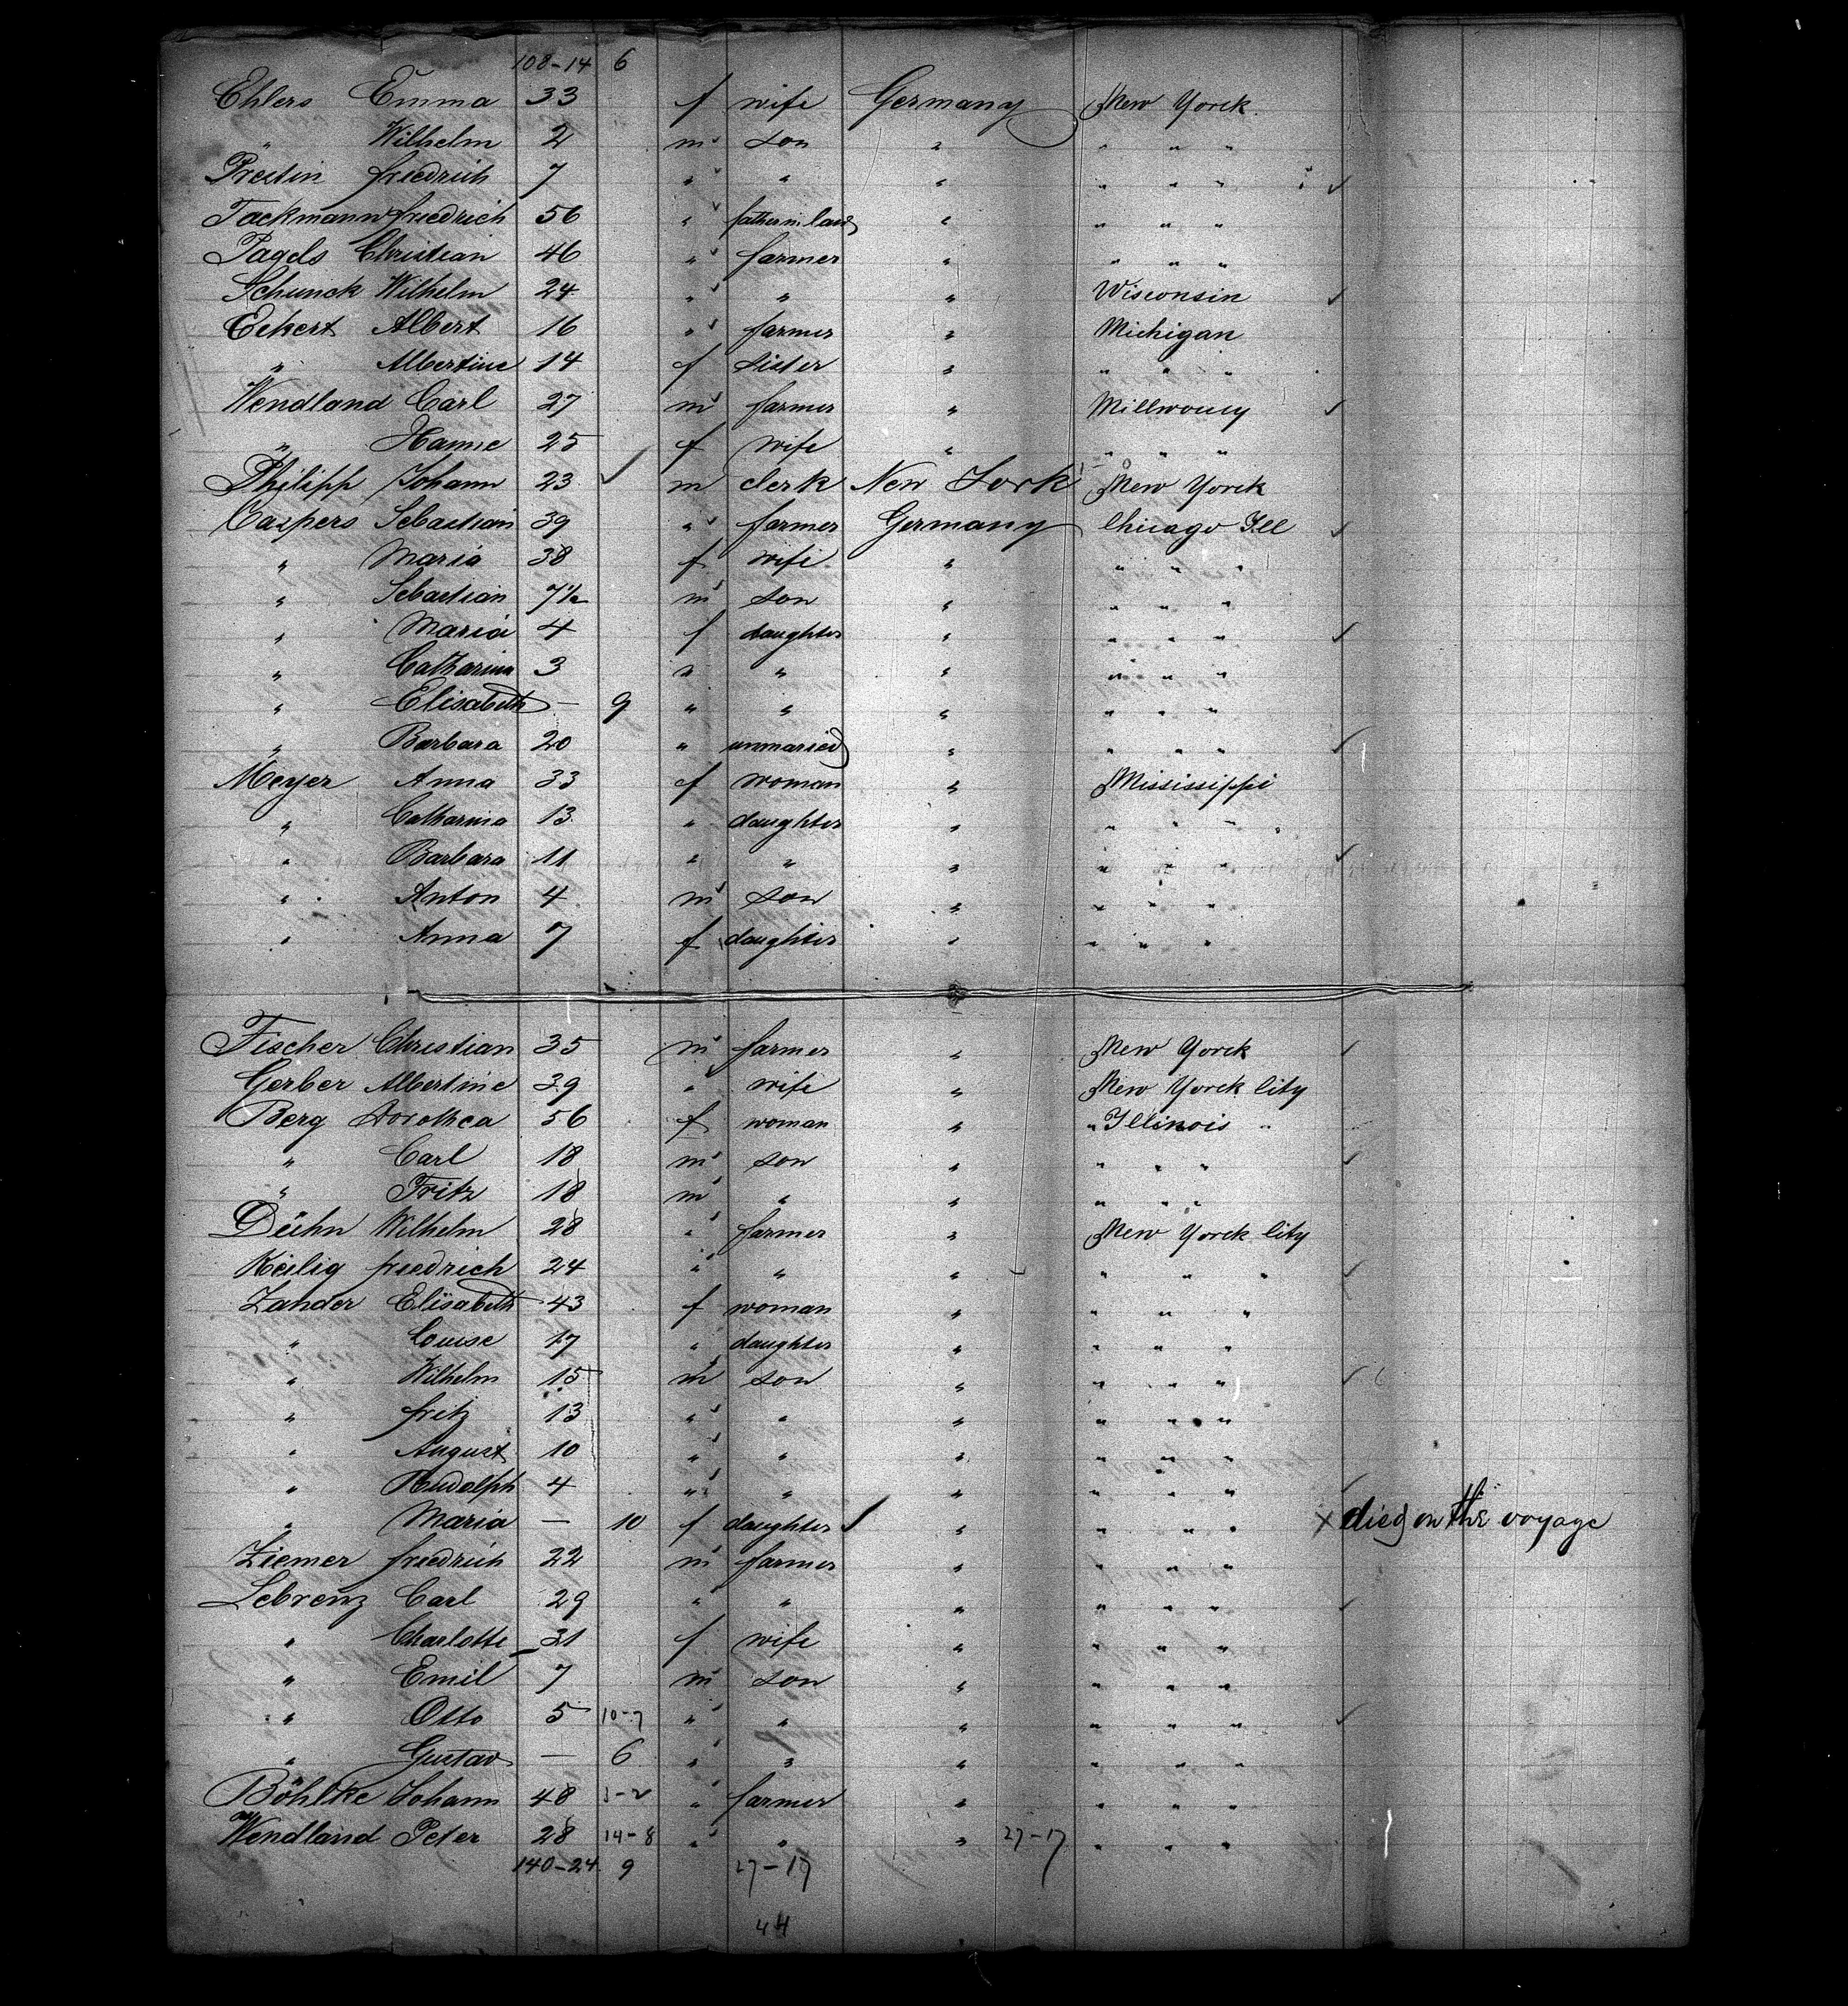 108-14 6
Ehlers Emma 33 f wife Germany New Yorck
" Wilhelm 2 m son " " " "
Prestin friedrich 7 " " " " " "
Tackmann friedrich 56 " father in law " " " "
Pagels Christian 46 " farmer " " " "
Schunck Wilhelm 24 " " " Wisconsin
Eckert Albert 16 " farmer " Michigan
" Albertine 14 f sister " " " "
Wendland Carl 27 m farmer " Millwoucy
" Hanne 25 f wife " " " "
Philipp Johann 23 m clerk New York New Yorck
Caspers Sebastian 39 " farmer Germany Chicago Ill
" Maria 38 f wife " " " "
" Sebastian 7½ m son " " " "
" Maria 4 f daughter " " " "
" Catharina 3 " " " " " "
" Elisabeth — 9 " " " " " "
" Barbara 20 " unmaried " " " "
Meyer Anna 33 f woman " Mississippi
" Catharina 13 " daughter " " " "
" Barbara 11 " " " " " "
" Anton 4 m son " " " "
" Anna 7 f daughter " " " "
Fischer Christian 35 m farmer " New Yorck
Gerber Albertine 39 " wife " New Yorck City
Berg Dorothea 56 f woman " " Illinois "
" Carl 18 m son " " " "
" Fritz 18 m " " " " "
Dühn Wilhelm 28 " farmer " New Yorck City
Keilig friedrich 24 " " " " " "
Zander Elisabeth 43 f woman " " " "
" Louise 17 " daughter " " " "
" Wilhelm 15 m son " " " "
" fritz 13 " " " " " "
" August 10 " " " " " "
" Rudolph 4 " " " " " "
" Maria — 10 f daughter " " " " x died on the voyage
Ziemer friedrich 22 m farmer " " " "
Lebrenz Carl 29 " " " " " "
" Charlotte 31 f wife " " " "
" Emil 7 m son " " " "
" Otto 5 10-7 " " " " " "
" Gustav — 6 " " " " " "
Böhlke Johann 48 3-2 " farmer " " " "
Wendland Peter 28 14-8 " " " 27-17 " " "
140-24 9 27-17
44